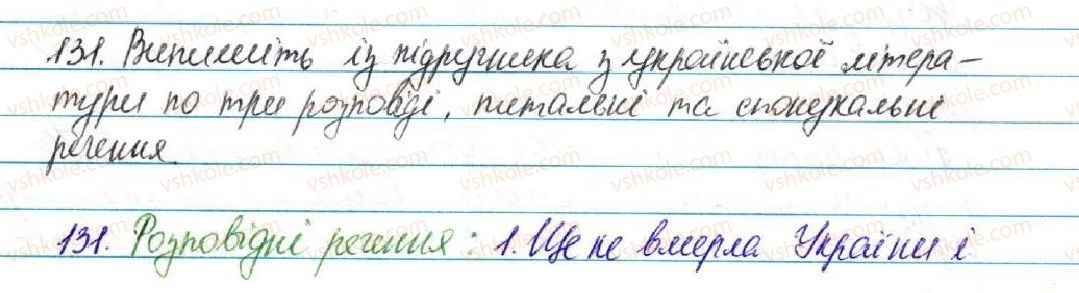 131. Випишіть із підручника з української літера-
тури по три розповіді, питальні та спонукальні
речення.
131. Розповідні речення: 1. Ще не вмерла України і